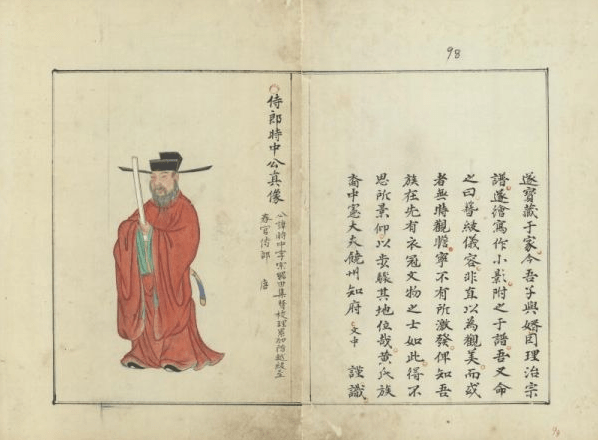 98
遂寶藏于家今吾子與婿因理治宗
譜遂繪寫作小影附之于譜吾又命
之曰儀容非直以為觀美而或
者無時觀瞻寧不有所激發俾知吾
族在先有衣冠文物之士如此得不
思所景仰以其地位哉黃氏族
裔中憲大夫饒州知府文中謹識
侍郎特中公真像
公諱特中字宗由集賢校理累加階越級至
官侍郎 唐